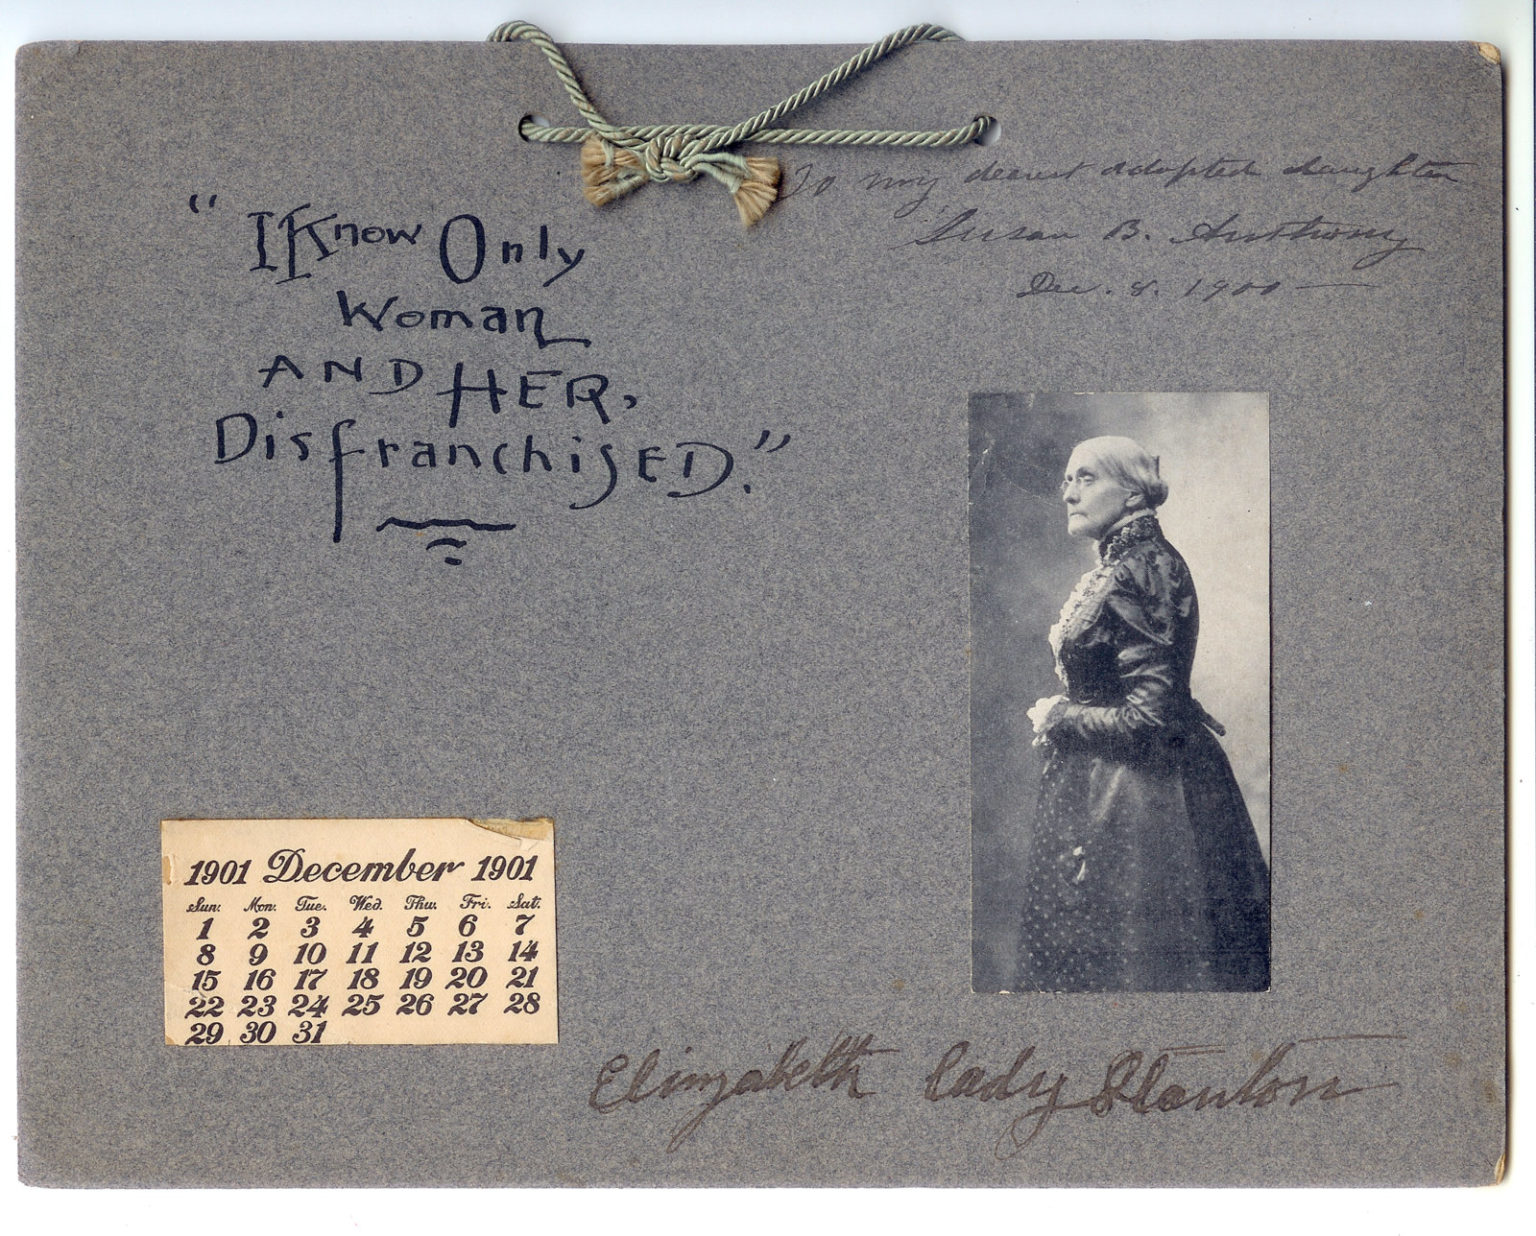 To my dearest adopted daughter
Susan B. Anthony
Dec. 8. 1900
"I Know Only
Woman
AND HER,
DisfranchisED."
1901 December 1901
Sun. Mon. Tue. Wed. Thu. Fri. Sat.
1 2 3 4 5 6 7
8 9 10 11 12 13 14
15 16 17 18 19 20 21
22 23 24 25 26 27 28
29 30 31
Elizabeth Cady Stanton